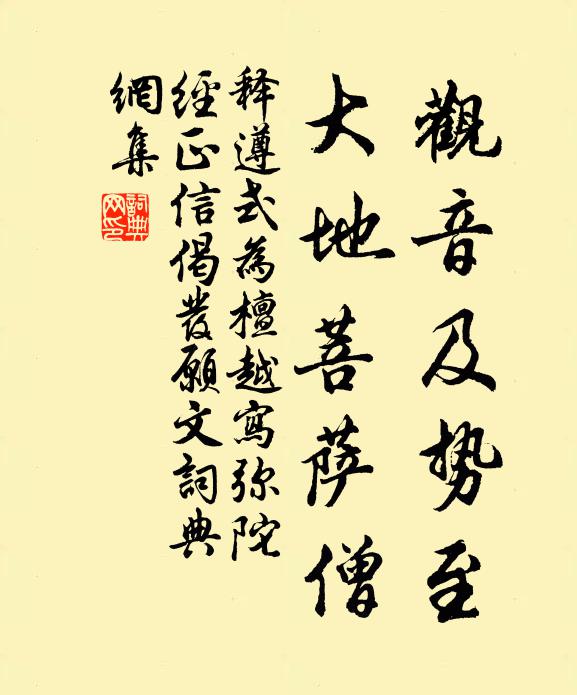 觀音及势至
大地菩萨僧
释遵式為檀越寫弥陀
經正信偈發願文詞典
網集
詞典网印